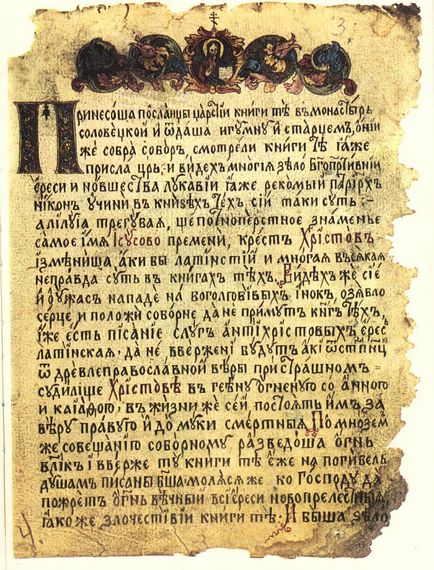 3
Принесоша посланцы царстїи книги тѣ въ монастырь
соловецкой и ѿдаша игумну и старцемъ, ѻни
же собра соборъ, смотрели книги тѣ ꙗже
присла црь: и видехъ многїя зѣло бгопротивнїи
ереси и новшества лукавїи ꙗже, рекомый патрїрхъ
никон учини в книзѣхъ тѣхъ, сїй таки суть:
алїлуїа трегубая, щепоноперстное знаменье
самое їмя Ісусово пременї, крестъ Христовъ
ізмѣниша аки вы латінстїи и многая всякая
неправда суть в книгахъ тѣхъ. Видѣхъ же сїе
й оужасъ нападе на боголюбивыхъ їнокъ, озябло
серце, и положи соборне да не прїмутъ книгъ тѣхъ,
їже есть пїсанїе слугъ антїхрістовыхъ ерес
латінская, да не ввержені будутъ акї
ѿ древлеправославной вѣры при страшномъ
судїлище Христовѣ в геѳну огненую со анного
и каїаѳою, в жизни же сей постоять їмъ за
вѣру правую й до муки смертныя По мнозем
же совещанїю соборному разведоша огнь
влїкъ і вверже ту книги тѣ еже на погибель
душам писаны бша моляся же ко Господу да
пожретъ огнь вѣчный всї ереси новопрелесныя
ꙗко же злочестівїи книги тѣ. И быша зѣло
4